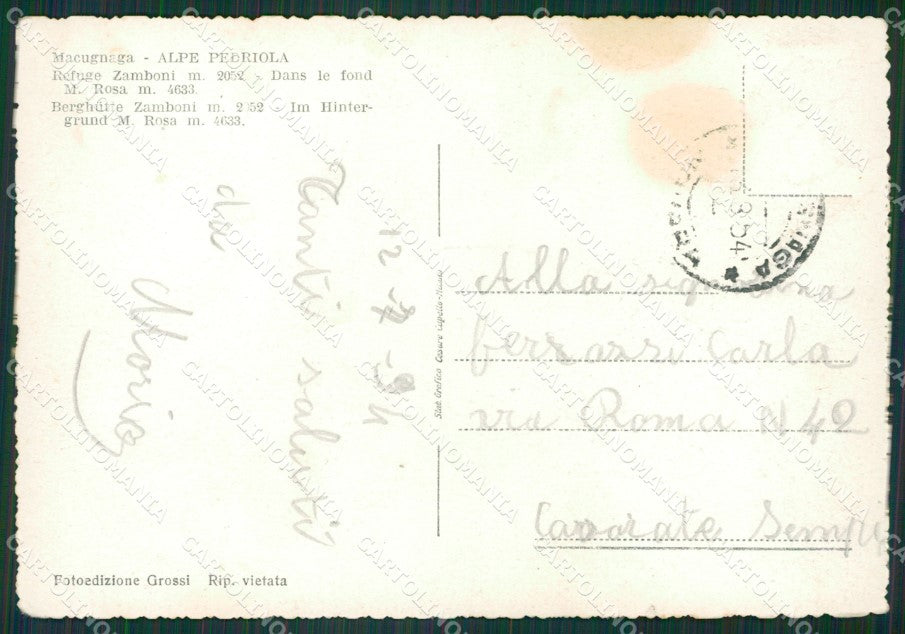 Macugnaga - ALPE PEDRIOLA
Refuge Zamboni m. 2052 - Dans le fond
M. Rosa m. 4633.
Berghütte Zamboni m. 2052 - Im Hinter-
grund M. Rosa m. 4633.
12-7-54
Tanti saluti
da
Maria
Stab. Grafico Cesare Capello-Milano
Alla
Carla
via Roma N 42
Cavorate Sempi
Fotoedizione Grossi Rip. vietata
CARTOLINOMANIA